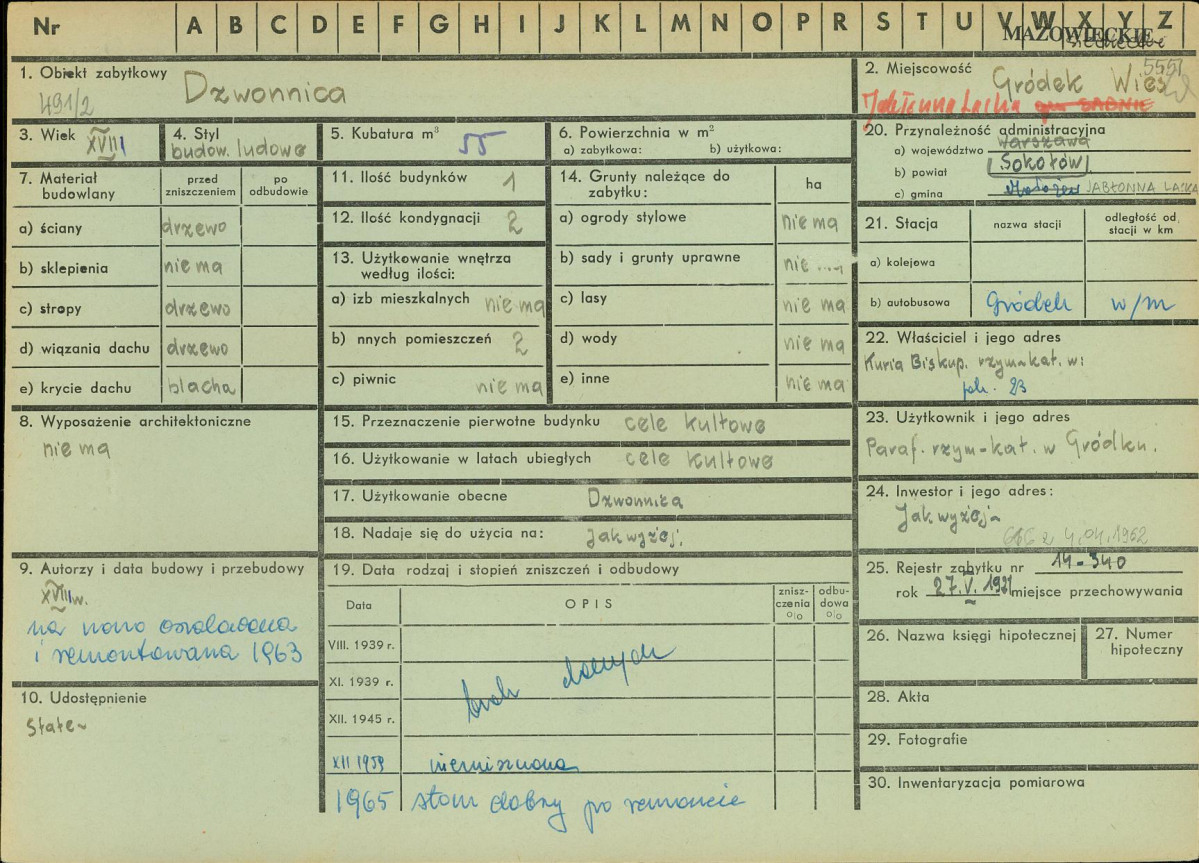 Nr A B C D E F G H I J K L M N O P R S T U V W X Y Z
MAZOWIECKIE
1. Obiekt zabytkowy Dzwonnica
491/2
2. Miejscowość Gródek Wieś
5551
Jabłonna Lacka
3. Wiek XVIII
4. Styl
budow. ludowe
5. Kubatura m³ 55
6. Powierzchnia w m²
a) zabytkowa: b) użytkowa:
7. Materiał budowlany
przed zniszczeniem
po odbudowie
a) ściany drzewo
b) sklepienia nie ma
c) stropy drzewo
d) wiązania dachu drzewo
e) krycie dachu blacha
8. Wyposażenie architektoniczne
nie ma
9. Autorzy i data budowy i przebudowy
XVIII w.
na nowo oszalowana
i remontowana 1963
10. Udostępnienie
Stałe
11. Ilość budynków 1
12. Ilość kondygnacji 2
13. Użytkowanie wnętrza
według ilości:
a) izb mieszkalnych nie ma
b) nnych pomieszczeń 2
c) piwnic nie ma
14. Grunty należące do
zabytku: ha
a) ogrody stylowe nie ma
b) sady i grunty uprawne nie
c) lasy nie ma
d) wody nie ma
e) inne nie ma
15. Przeznaczenie pierwotne budynku cele kultowe
16. Użytkowanie w latach ubiegłych cele kultowe
17. Użytkowanie obecne Dzwonnica
18. Nadaje się do użycia na: Jak wyżej.
19. Data rodzaj i stopień zniszczeń i odbudowy
Data
OPIS
znisz-
czenia
%
odbu-
dowa
%
VIII. 1939 r.
XI. 1939 r.
brak danych
XII. 1945 r.
XII 1959 niezniszczona
1965 stan dobry po remoncie
20. Przynależność administracyjna
a) województwo Warszawa
b) powiat Sokołów
c) gmina JABŁONNA LACKA
21. Stacja
nazwa stacji
odległość od
stacji w km
a) kolejowa
b) autobusowa Gródek w/m
22. Właściciel i jego adres
Kuria Biskup. rzym-kat. w:
23. Użytkownik i jego adres
Paraf. rzym-kat. w Gródku.
24. Inwestor i jego adres:
Jak wyżej
z 4.04.1962
25. Rejestr zabytku nr 14-340
rok 27.V. miejsce przechowywania
26. Nazwa księgi hipotecznej
27. Numer
hipoteczny
28. Akta
29. Fotografie
30. Inwentaryzacja pomiarowa